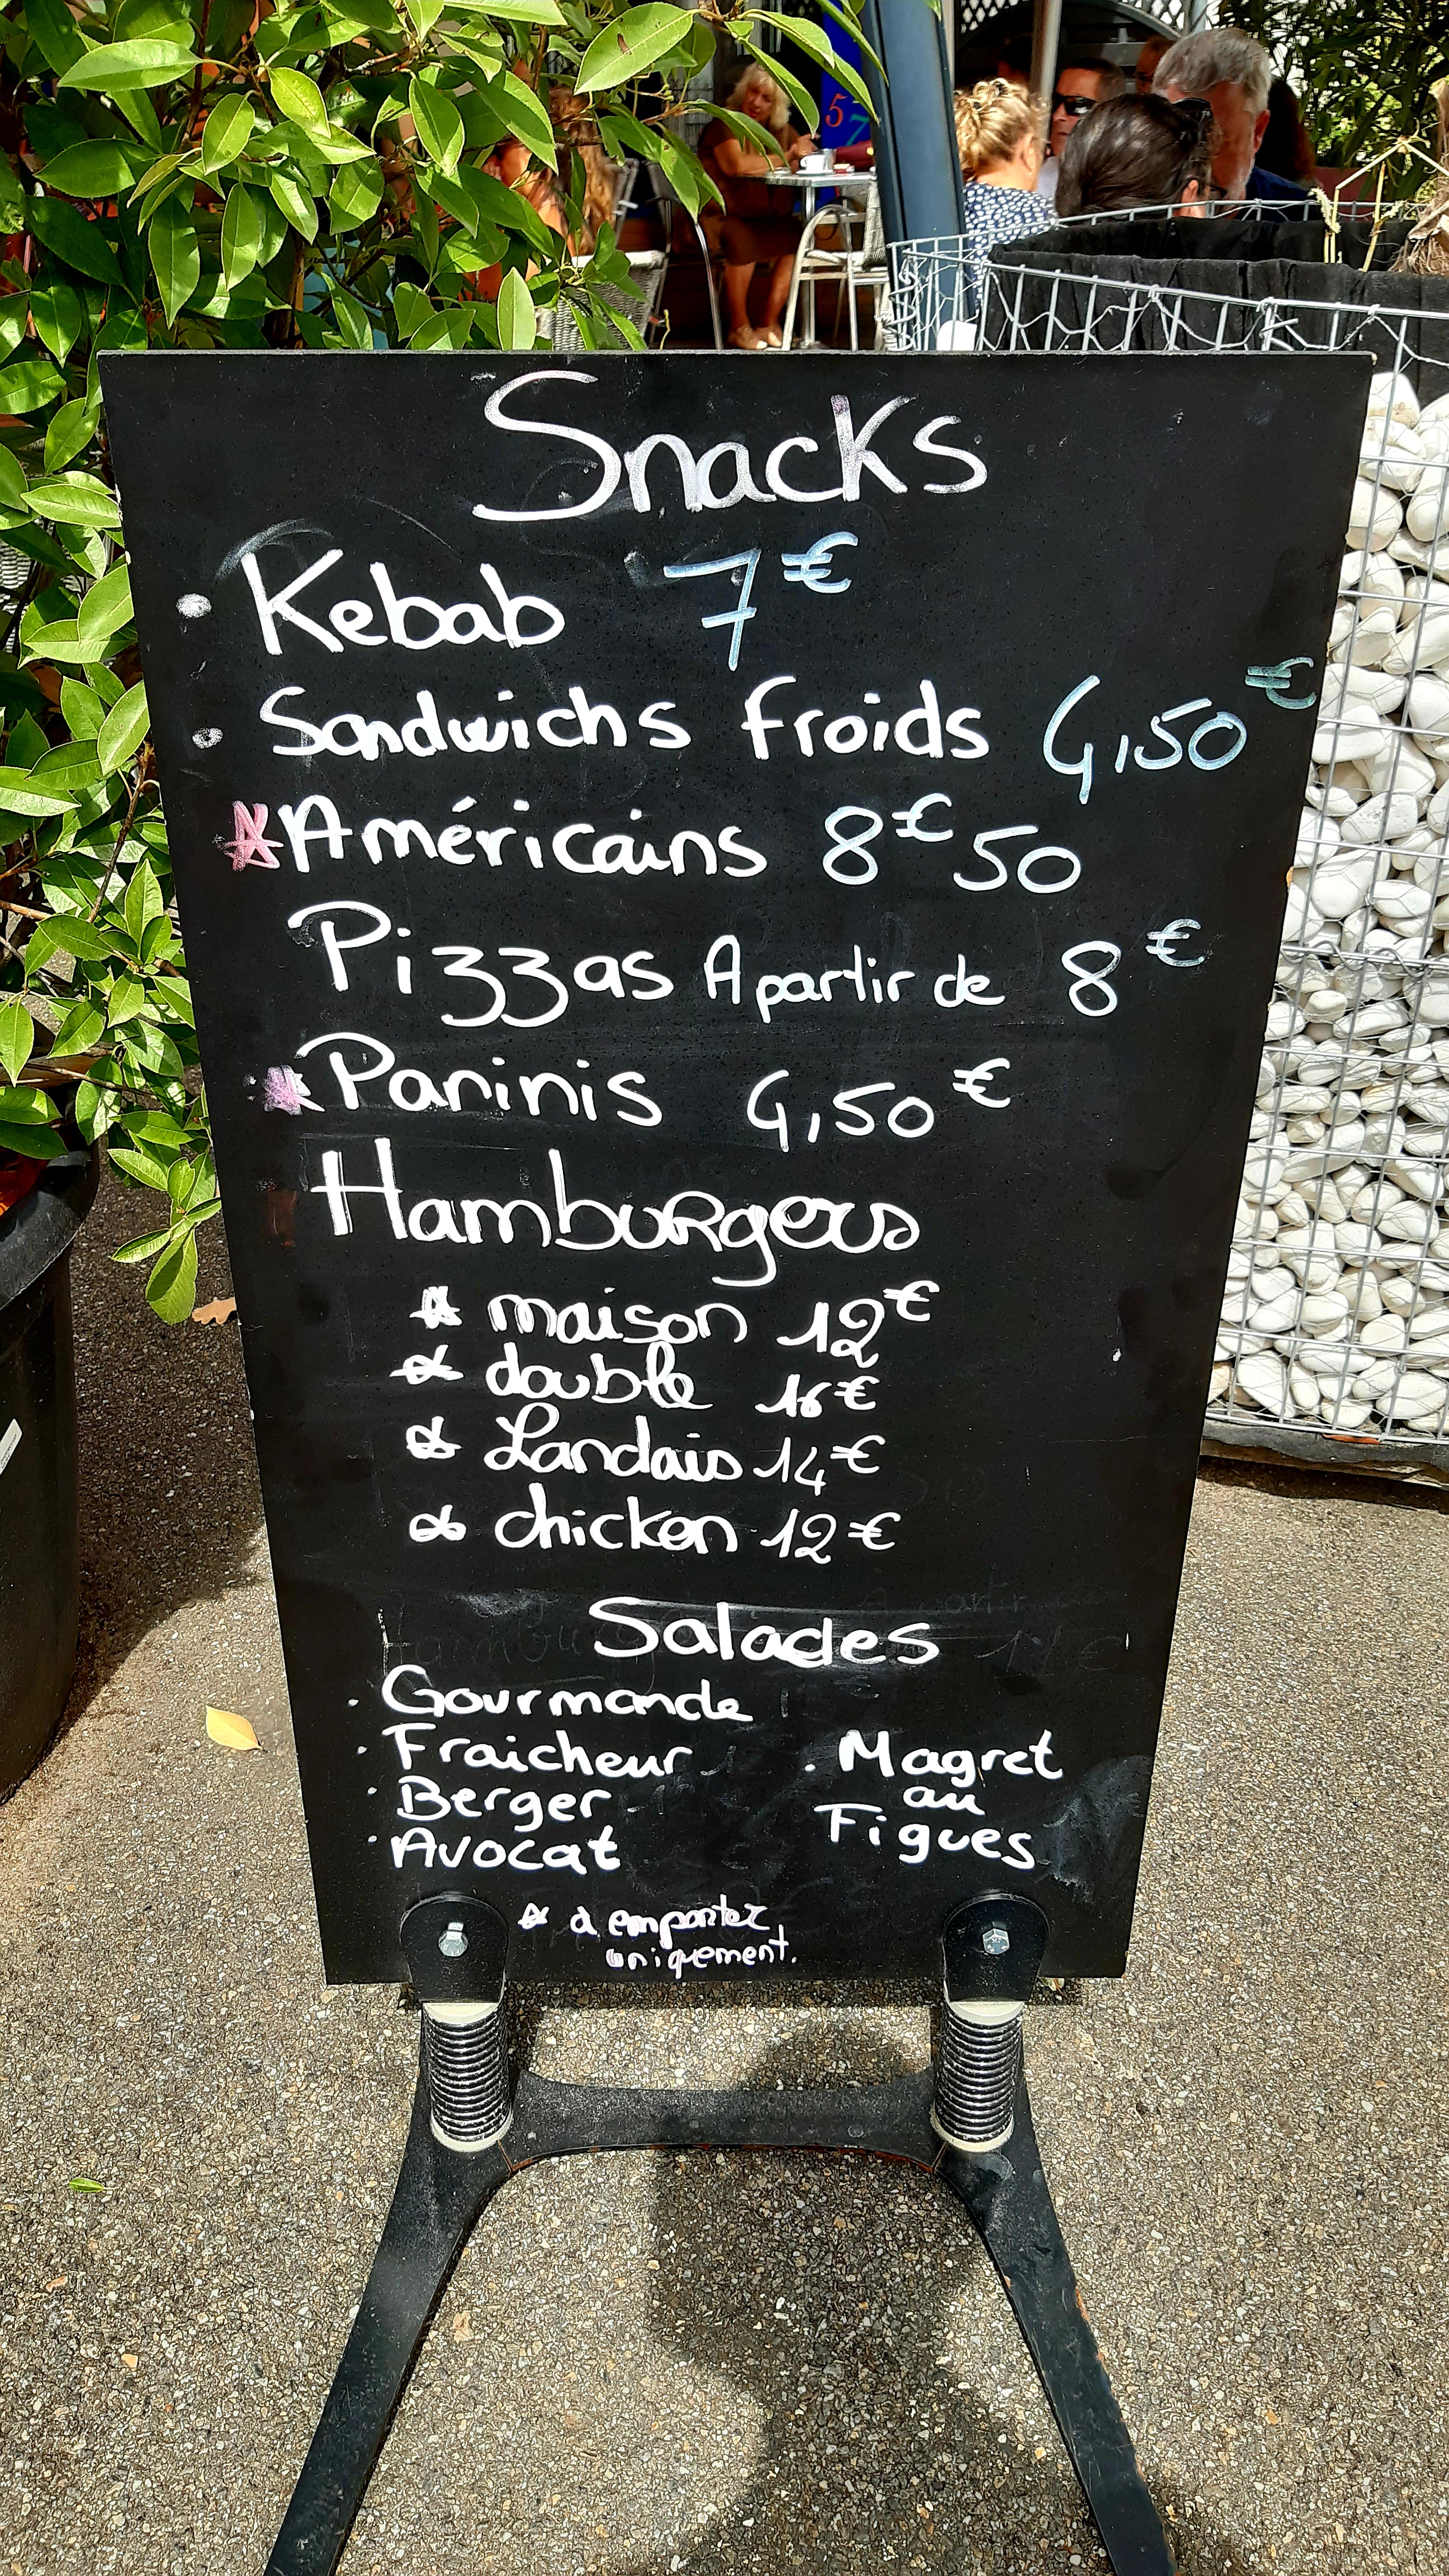 5 7
Snacks
• Kebab 7€
• Sandwichs froids 4,50€
* Américains 8€50
Pizzas A partir de 8€
* Paninis 4,50€
Hamburgers
* maison 12€
* double 16€
* Landais 14€
* chicken 12€
Salades
• Gourmande
• Fraicheur
• Berger
• Avocat
• Magret
au
Figues
* à emporter
uniquement.